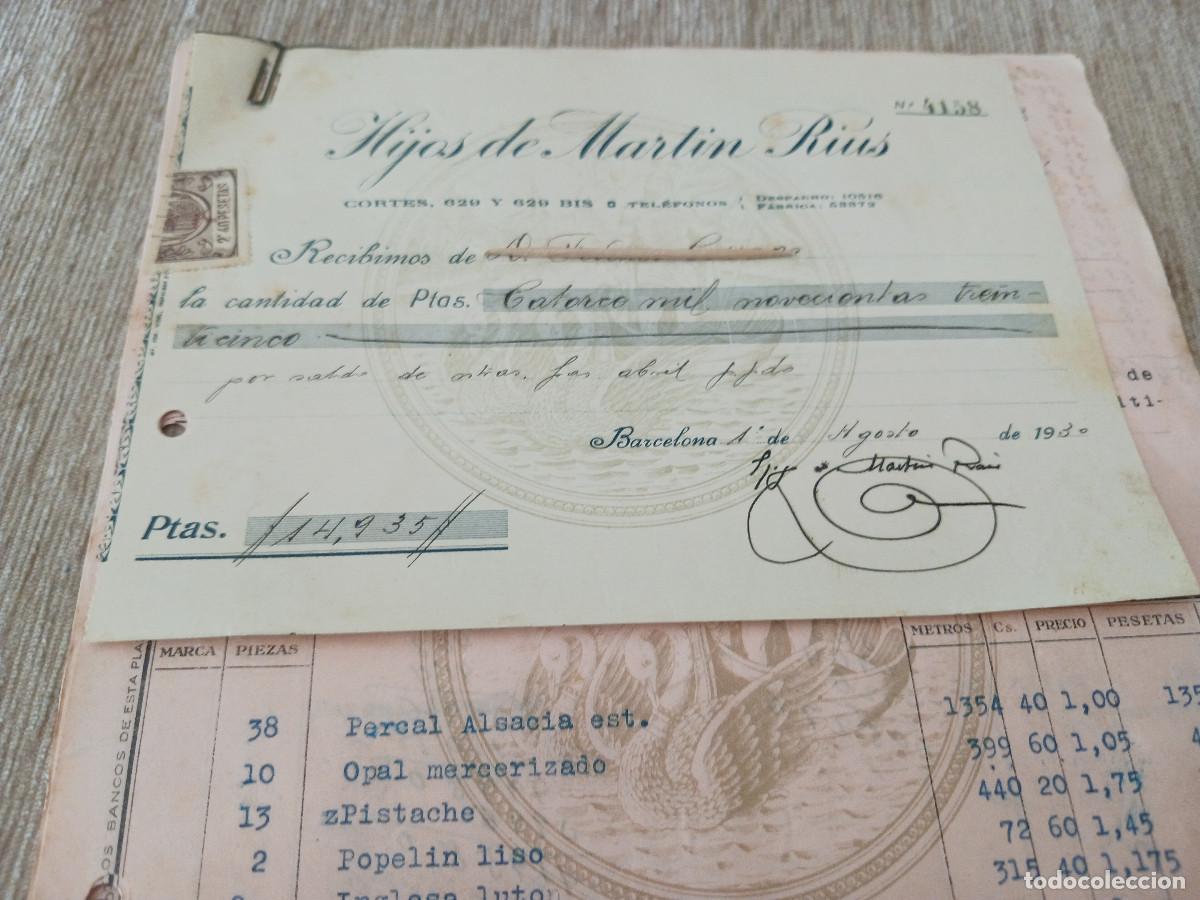 Nº 4158
Hijos de Martin Rius
CORTES, 629 Y 629 BIS TELÉFONOS DESPACHO: 10516
FÁBRICA: 53372
2'40 PESETAS
Recibimos de
la cantidad de Ptas. Catorce mil novecientas trein-
ticinco
por saldo de ntras. fras abril ppdo
Barcelona 1º de Agosto de 1930
Hijos de Martin Rius
Ptas. 14,935
de
lti-
MARCA PIEZAS METROS Cs. PRECIO PESETAS
38 Percal Alsacia est. 1354 40 1,00 135
10 Opal mercerizado 399 60 1,05 4
13 zPistache 440 20 1,75
2 Popelin liso 72 60 1,45
Inglesa luton 315 40 1,175
LOS BANCOS DE ESTA PLA
todocoleccion